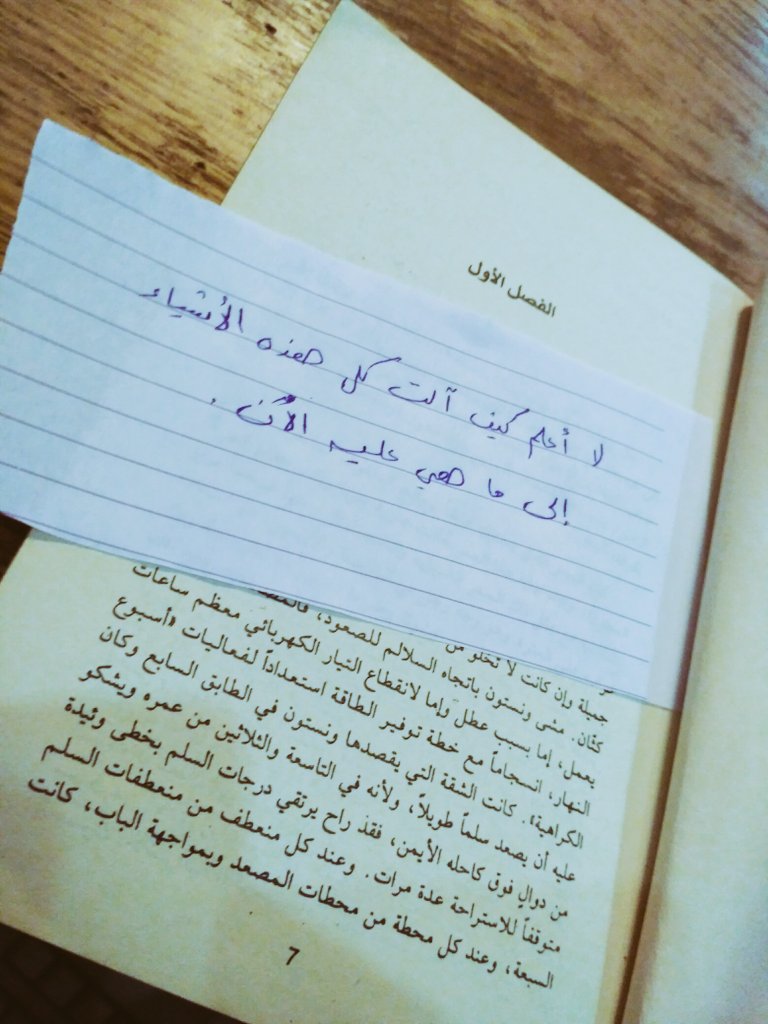 الفصل الأول
لا أعلم كيف آلت كل هذه الأشياء
إلى ما هي عليه الآن.
جميلة وإن كانت لا تخلو من
كتّان. مشى ونستون باتجاه السلالم للصعود،
يعمل، إما بسبب عطل وإما لانقطاع التيار الكهربائي معظم ساعات
النهار، انسجاماً مع خطة توفير الطاقة استعداداً لفعاليات «أسبوع
الكراهية». كانت الشقة التي يقصدها ونستون في الطابق السابع وكان
عليه أن يصعد سلماً طويلاً، ولأنه في التاسعة والثلاثين من عمره ويشكو
من دوالٍ فوق كاحله الأيمن، فقد راح يرتقي درجات السلم بخطى وئيدة
متوقفاً للاستراحة عدة مرات. وعند كل منعطف من منعطفات السلم
السبعة، وعند كل محطة من محطات المصعد وبمواجهة الباب، كانت
7